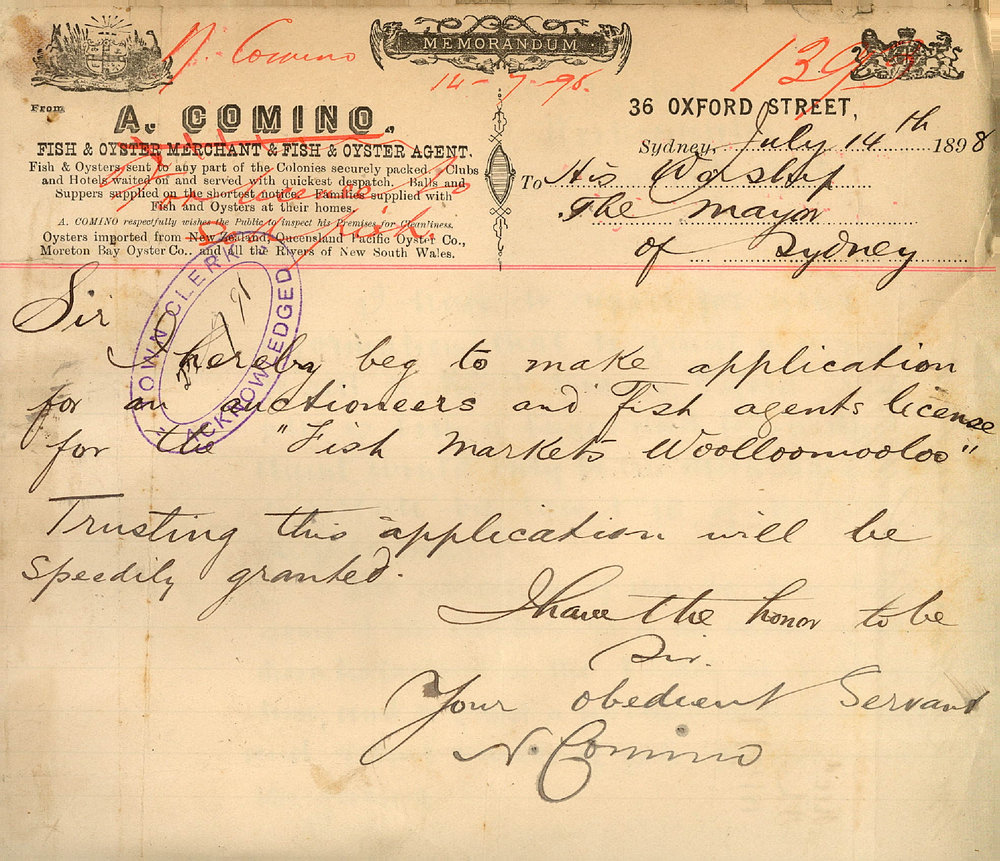 N. Comino
MEMORANDUM
14-7-98.
1399
From
A. COMINO.
FISH & OYSTER MERCHANT & FISH & OYSTER AGENT.
Fish & Oysters sent to any part of the Colonies securely packed. Clubs
and Hotels waited on and served with quickest despatch. Balls and
Suppers supplied on the shortest notice. Families supplied with
Fish and Oysters at their homes.
A. COMINO respectfully wishes the Public to inspect his Premises for Cleanliness.
Oysters imported from New Zealand, Queensland Pacific Oyster Co.,
Moreton Bay Oyster Co., and all the Rivers of New South Wales.
36 OXFORD STREET,
Sydney, July 14th 1898
To His Worship
The Mayor
of Sydney
TOWN CLERK'S
ACKNOWLEDGED
Sir
I hereby beg to make application
for an auctioneers and Fish agents license
for the "Fish Markets Woolloomooloo"
Trusting this application will be
speedily granted.
I have the honor to be
Sir.
Your obedient Servant
N. Comino